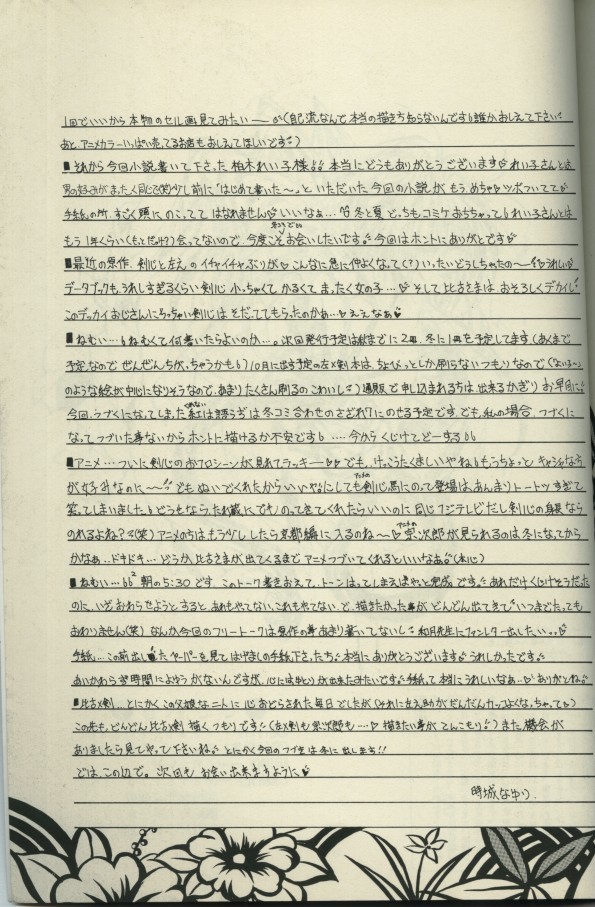 1回でいいから本物のセル画見てみたい――(自己流なんで本当の描き方知らないんです誰かおしえて下さい
あと、アニメカラーいっぱい売ってるお店もおしえてほしいです)
■それから今回小説書いて下さった柏木れい子様 本当にどうもありがとうございます れい子さんとは
男の好みがまったく同じで少し前に「はじめて書いた〜」といただいた今回の小説がもうめちゃツボついてて
手紙の所、すごく頭にのこってて はなれません いいなぁ… 冬と夏どっちもコミケおちちゃって れい子さんとは
もう1年くらい(もっとだっけ?)会ってないので、今度こそお会いしたいです 今回はホントにありがとです
■最近の原作、剣心と左之のイチャイチャぶりが こんなに急に仲よくなって(?)いったいどうしちゃったの〜 うれしい
データブックも、うれしすぎるくらい剣心小っちゃくてかるくてまったく女の子… そして比古さまはおそろしくデカイし
このデッカイおじさんにちっちゃい剣心はそだててもらったのかぁ… ええなぁ
■ねむい…ねむくて何書いたらよいのか…。次回発行予定は秋までに2冊、冬に1冊を予定してます(あくまで
予定なのでぜんぜんちがっちゃうかも)10月に出す予定の左×剣本は、ちょびっとしか刷らないつもりなので(
のような絵が中心になりそうなので、あまりたくさん刷るのこわいし)通販で申し込まれる方は出来るかぎりお早目に
今回、つづくになってしまった紅は誘うぎは冬コミ合わせのさざれ7にのせる予定です でも、私の場合、つづくに
なってつづいた事ないからホントに描けるか不安です …今からくじけてどーする
■アニメ…ついに剣心のおフロシーンが見れてラッキー でも、けっこうたくましいやね もうちょっとキャシャな方
が女子みなのに〜 でもぬいでくれたからいいや にしてもアニメの剣心馬にのって登場は、あんまりトートツすぎて
笑ってしまいました どうせならたれ蔵にでものってきてくれたらいいのに 同じフジテレビだし剣心の身長なら
のれるよね?(笑) アニメのちはもう少ししたら京都編に入るのね〜 アニメの宗次郎が見られるのは冬になってから
かなぁ…ドキドキ… どうか、比古さまが出てくるまでアニメつづいてくれるといいなぁ(本心)
■ねむい… 朝の5:30です このトーク書きおえて、トーンはってしまえばやっと完成です あれだけくじけそうだった
のに、いざおわらせようとすると、あれもやってない、これもやってない、で、描きたかった事がどんどん出てきていつまでたっても
おわりません(笑) なんか今回のフリートークは原作の事あまり書いてないし 和月先生にファンレター出したい…
手紙…この前出したペーパーを見てはげましの手紙下さった方 本当にありがとうございます うれしかったです
あいかわらず時間によゆうがないんですが、心にはゆとりが出来たみたいです 手紙って本当にうれしいなぁ… ありがとね
■比古×剣…とにかくこの父娘な二人に心おどらされた毎日でしたが(それに左之助がだんだんカッコよくなっちゃって)
この先も、どんどん比古×剣描くつもりです(左×剣も宗次郎も… 描きたい事がてんこもり)また機会が
ありましたら見てやって下さいね とにかく今回のつづきは冬に出します!!
では、この辺で。次回もお会い出来ますように
時城なゆり.